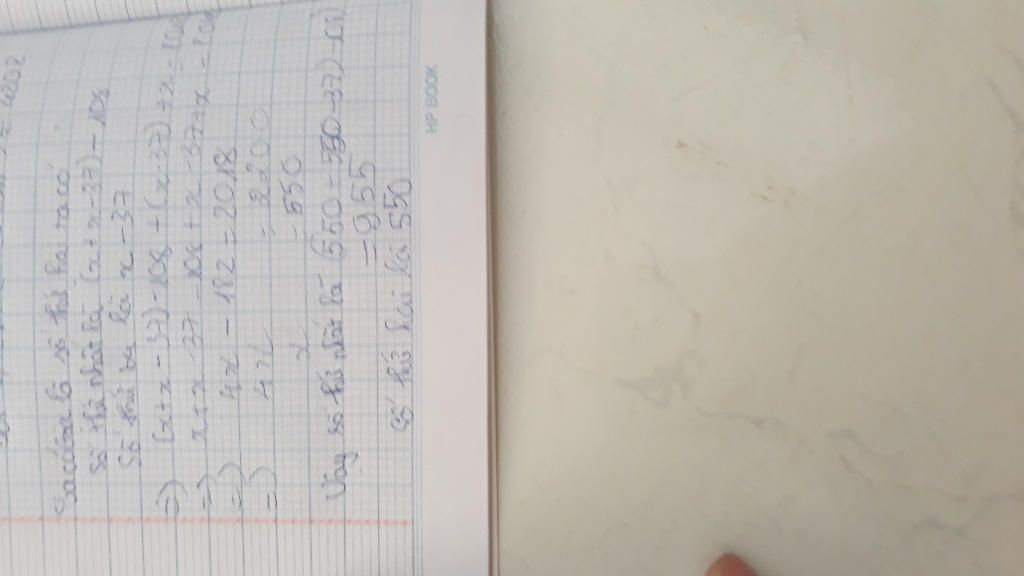 số thứ hai ta có
số thứ nhất là (x+x-37)-108
Số thứ ba là x-37
=) (x+x-37)-108+(x-37)+x=
=) x+x-37-108+x-37+x=
=) 4x-182=2018
=) 4x = 2200
x = 550
Vậy số thứ nhất là (550-550-37)-
=955
số thứ hai là 550
HP BOOK